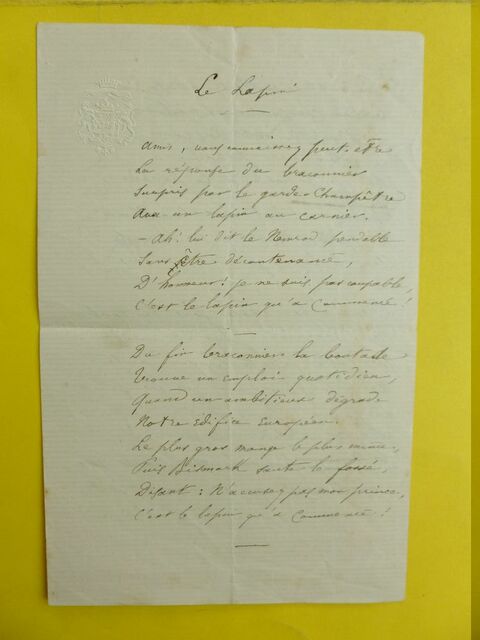 Le Lapin
Amis, vous connaissez peut-être
La réponse du braconnier
Surpris par le garde-Champêtre
Avec un lapin au carnier.
— Ah! lui dit le Nemrod pendable
Sans être décontenancé,
D'honneur! je ne suis pas coupable,
C'est le lapin qu'a commencé!
Du fin braconnier la boutade
Trouve un emploi quotidien,
Quand un ambitieux dégrade
Notre édifice Européen.
Le plus gros mange le plus mince,
Puis Bismark saute le fossé,
Disant: N'accusez pas mon prince,
C'est le lapin qu'a commencé!